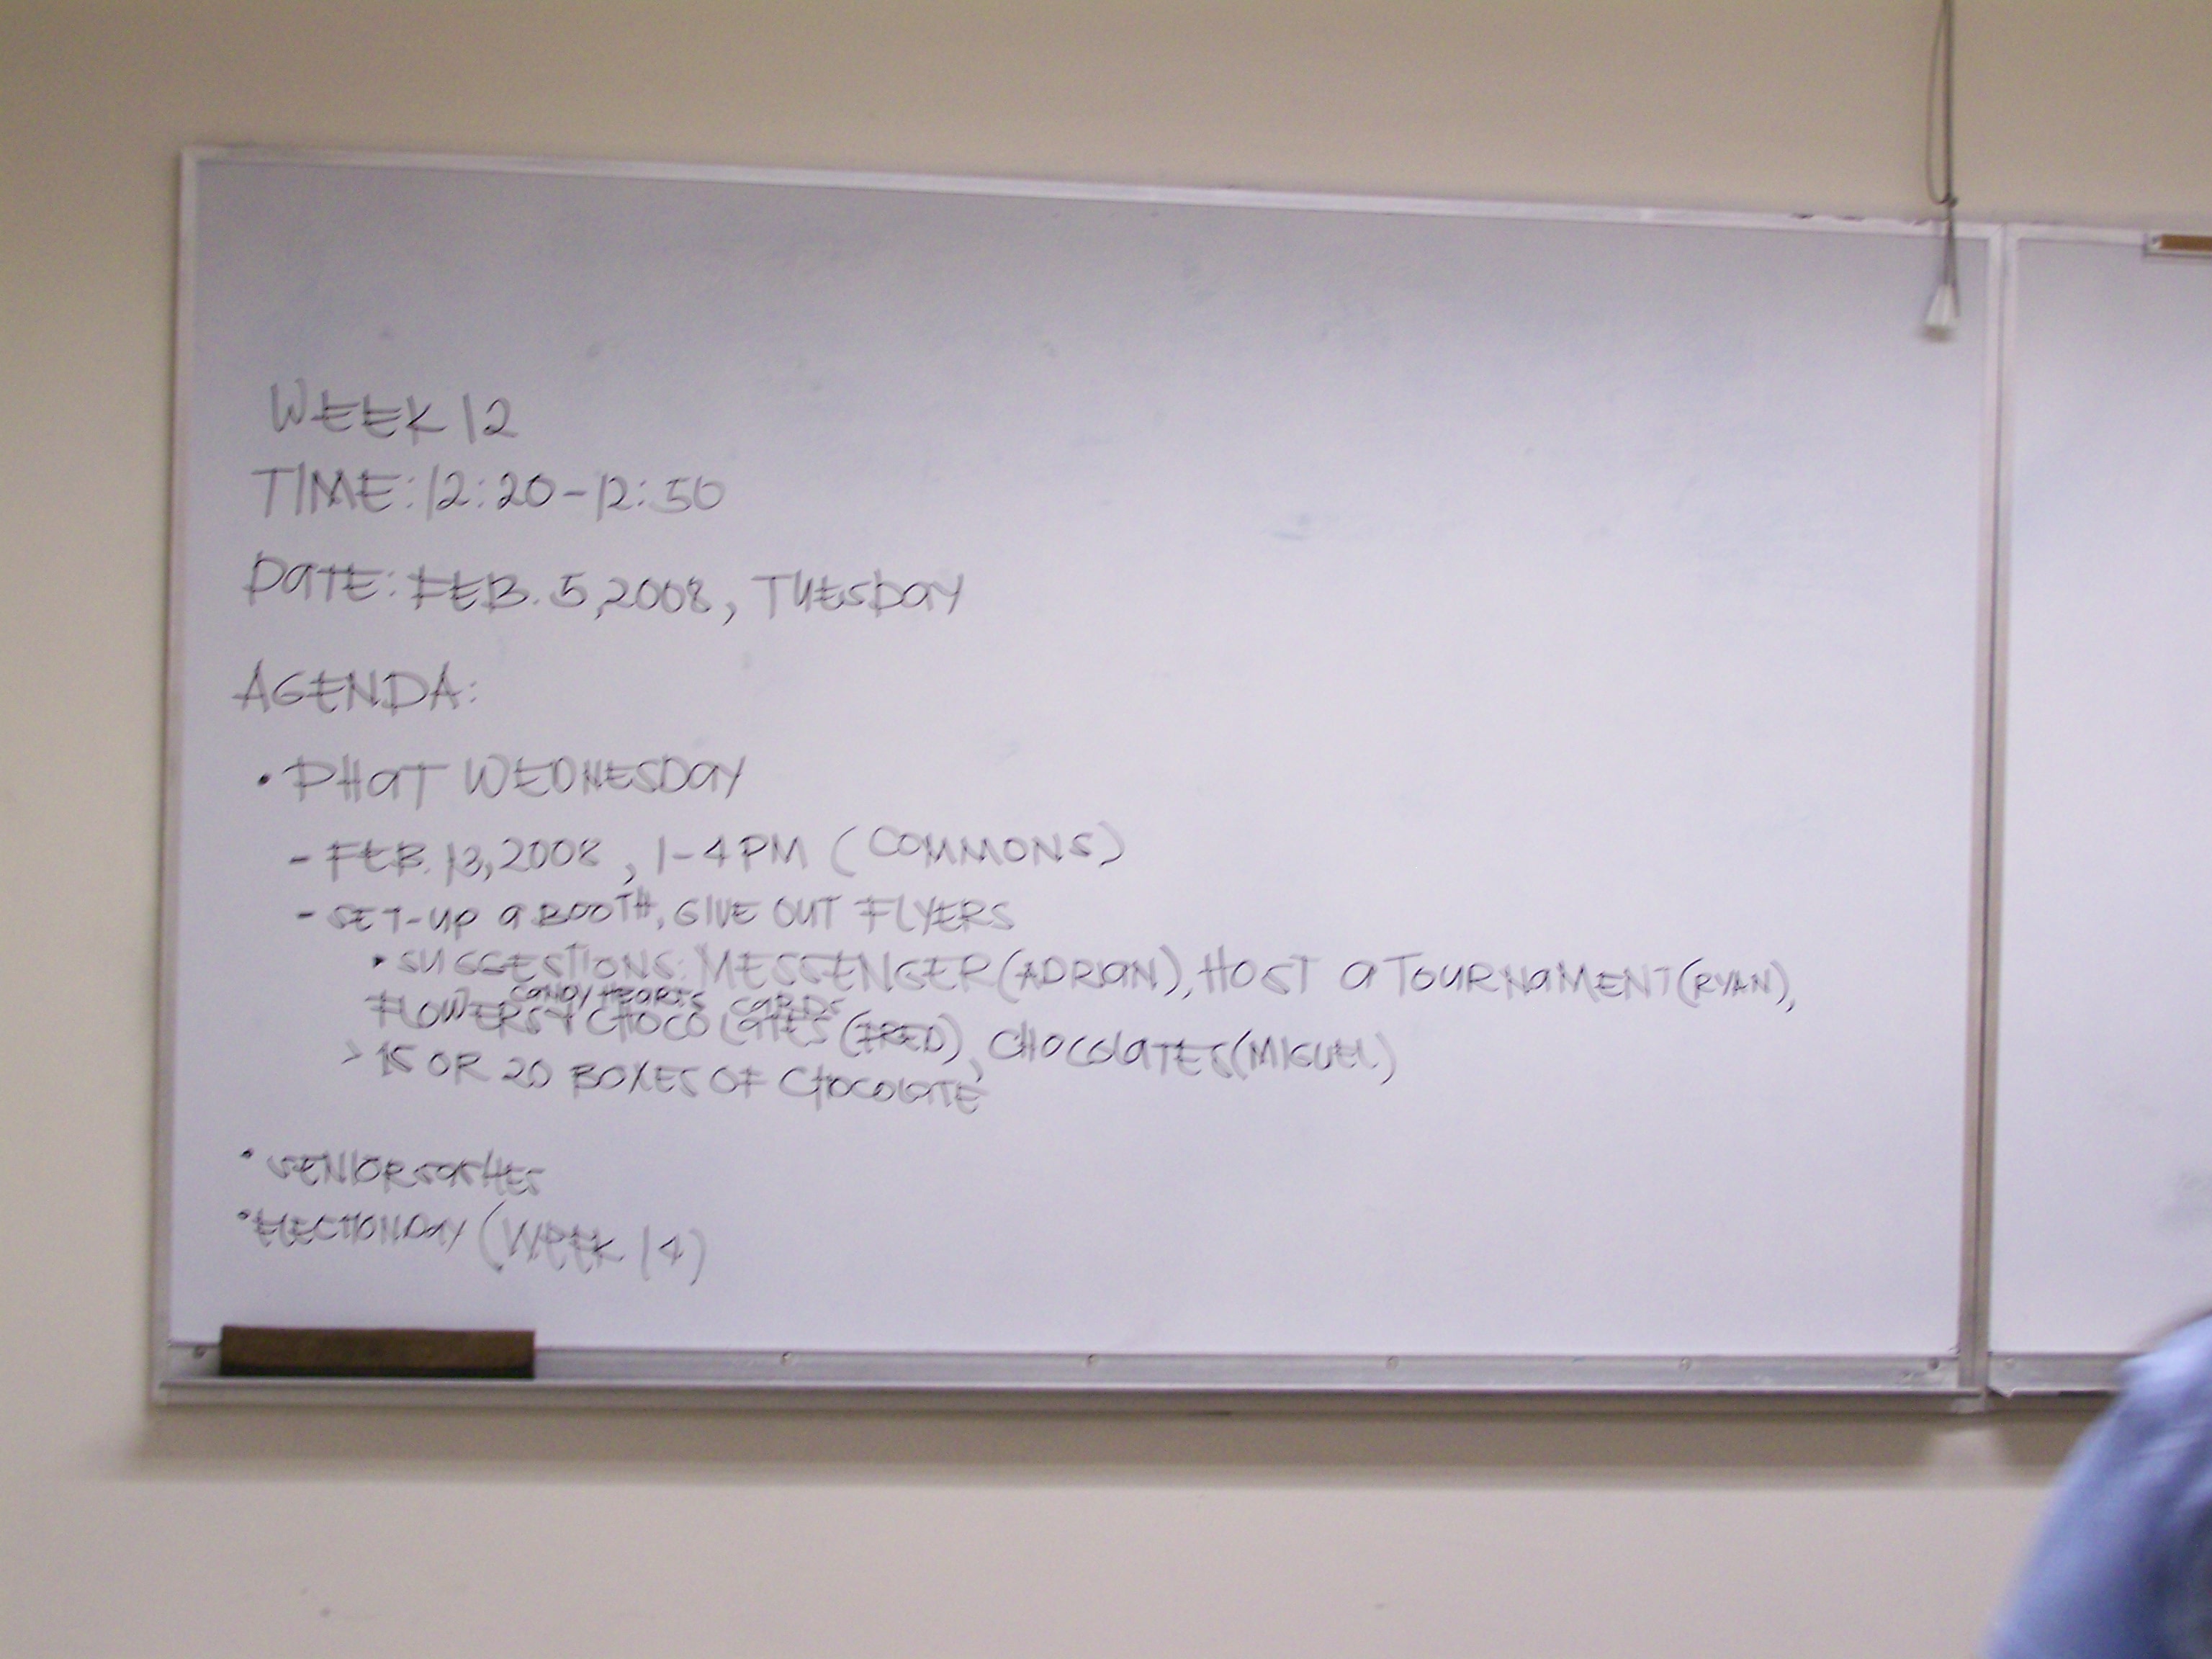 WEEK 12
TIME: 12:20-12:50
DATE: FEB. 5, 2008, TUESDAY
AGENDA:
• PHAT WEDNESDAY
- FEB. 13, 2008, 1-4 PM (COMMONS)
- SET-UP A BOOTH, GIVE OUT FLYERS
• SUGGESTIONS: MESSENGER (ADRIAN), HOST A TOURNAMENT (RYAN),
CANDY HEARTS CARDS
FLOWERS & CHOCOLATES (FRED), CHOCOLATES (MIGUEL)
> 15 OR 20 BOXES OF CHOCOLATE
• SENIOR SASHES
• ELECTION DAY (WEEK 14)